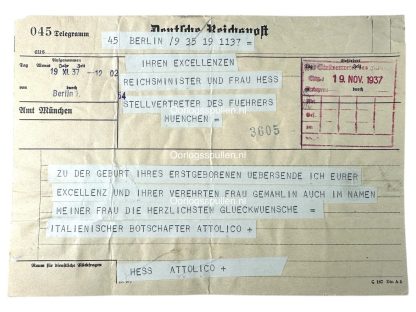 045 Telegramm
Deutsche Reichspost
45 BERLIN /9 35 19 1137 =
Aufgenommen
Tag Monat Jahr Zeit
19 XI. 37 - 12 02
durch
Berlin
Amt München
IHREN EXCELLENZEN
REICHSMINISTER UND FRAU HESS
54
STELLVERTRETER DES FUEHRERS
MUENCHEN =
3605
19. NOV. 1937
Oorlogsspullen.nl
ZU DER GEBURT IHRES ERSTGEBORENEN UEBERSENDE ICH EURER
EXCELLENZ UND IHRER VEREHRTEN FRAU GEMAHLIN AUCH IM NAMEN
MEINER FRAU DIE HERZLICHSTEN GLUECKWUENSCHE =
ITALIENISCHER BOTSCHAFTER ATTOLICO +
HESS ATTOLICO +
Raum für dienstliche Rückfragen